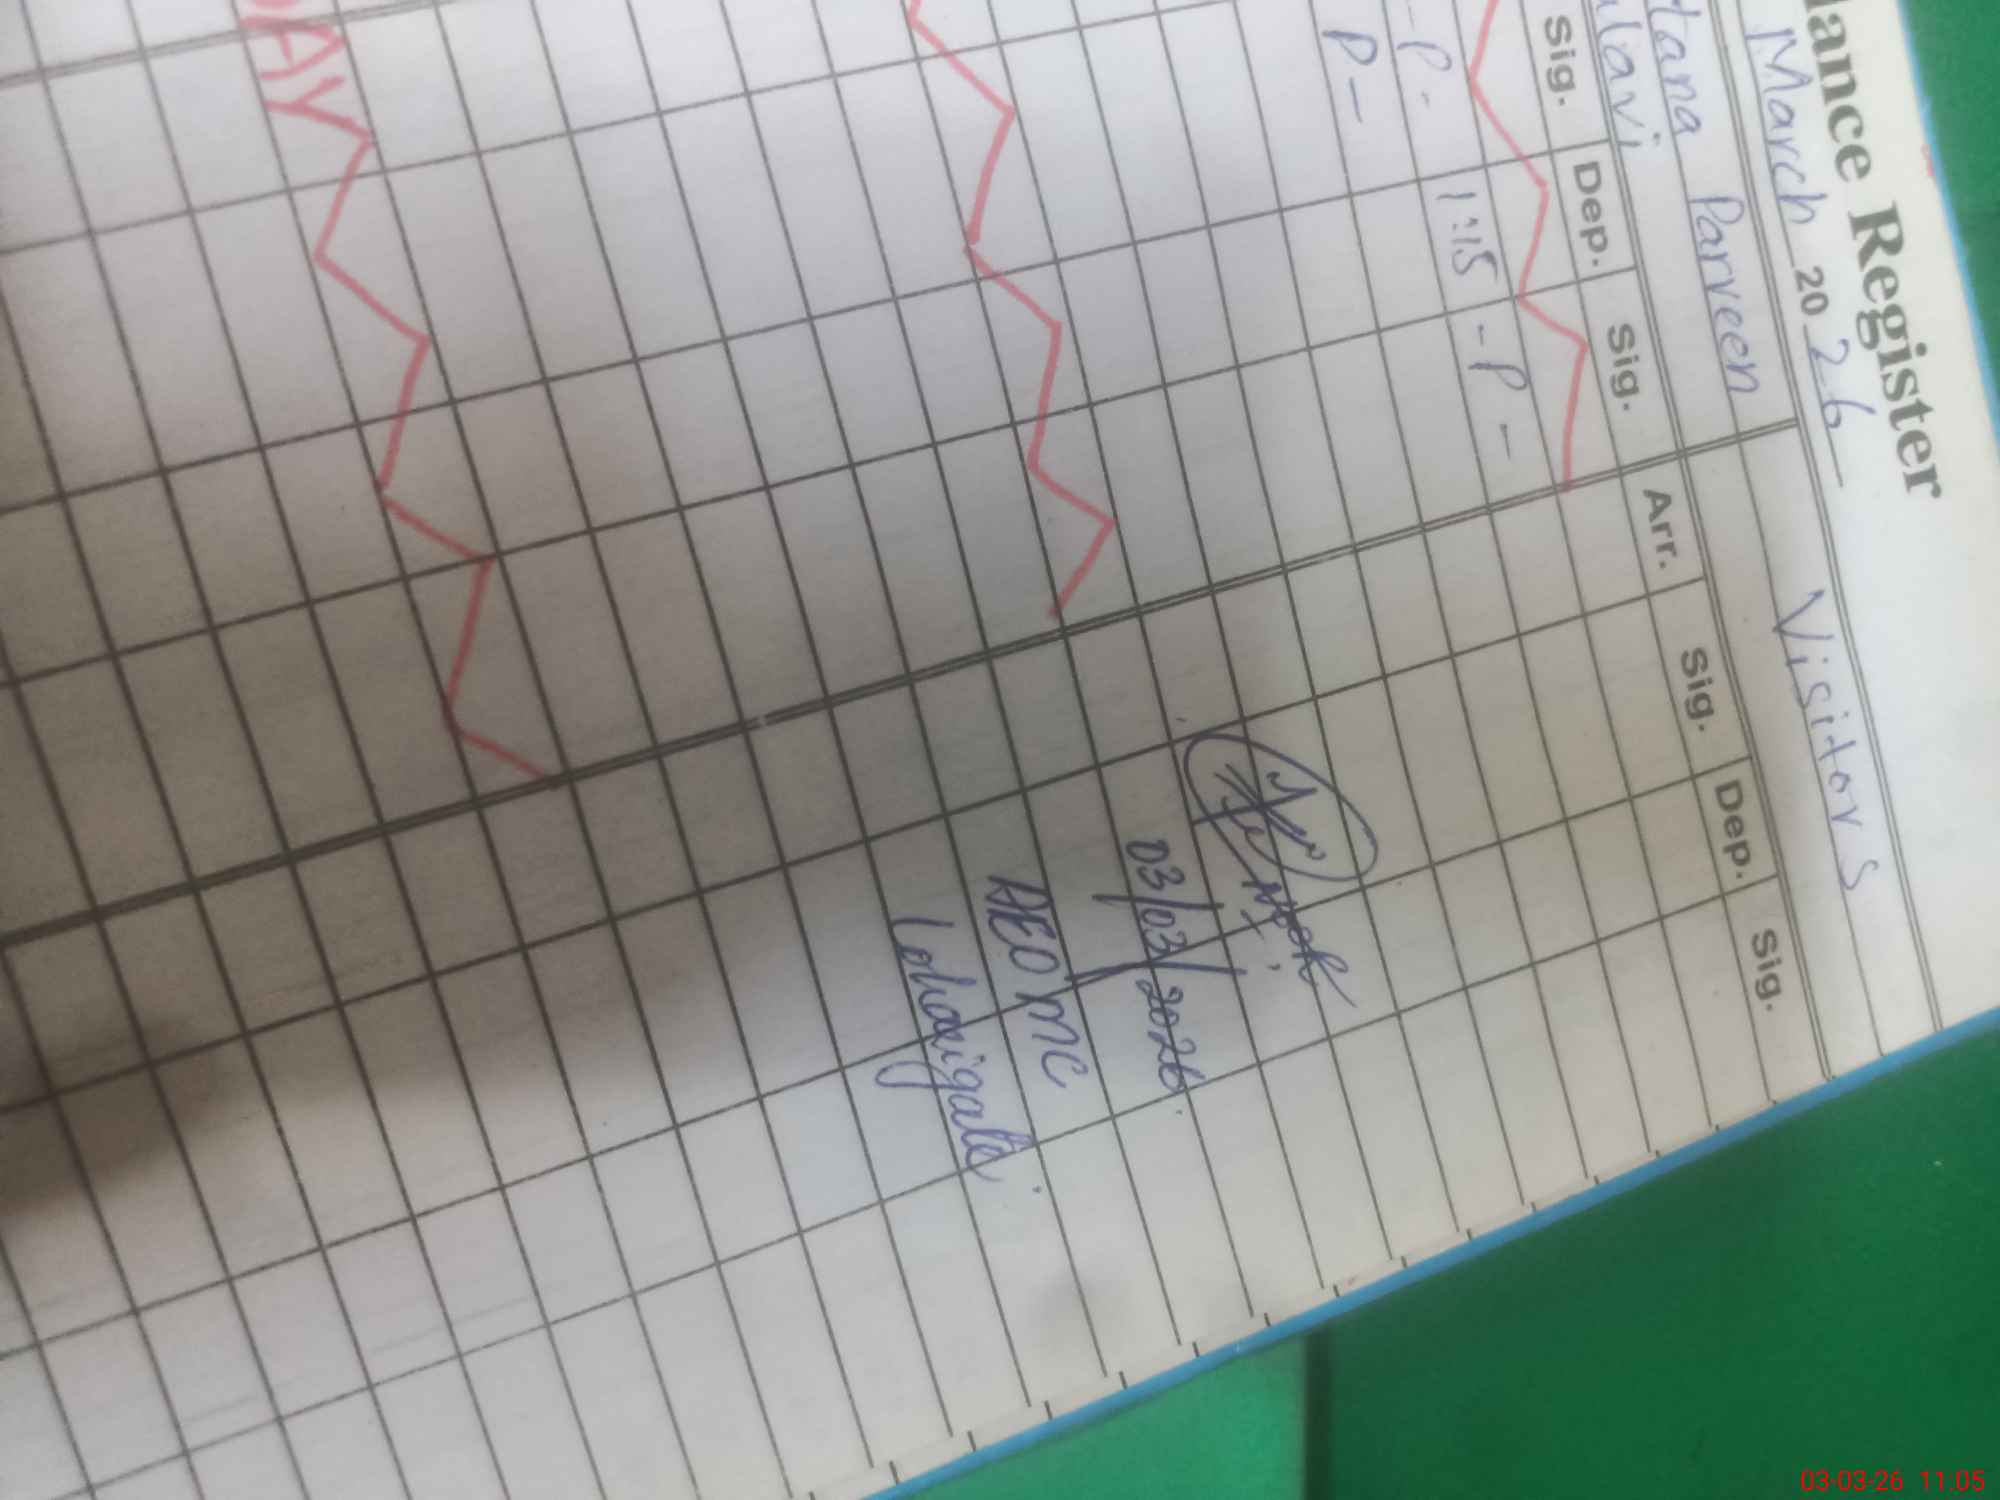 dance Register
March 2026
Visitors
tana Parveen
ulavi
Sig. Dep. Sig. Arr. Sig. Dep. Sig.
-P- 1:15 -P-
P-
03/03/2026
AEO MC
DAY
03-03-26 11:05